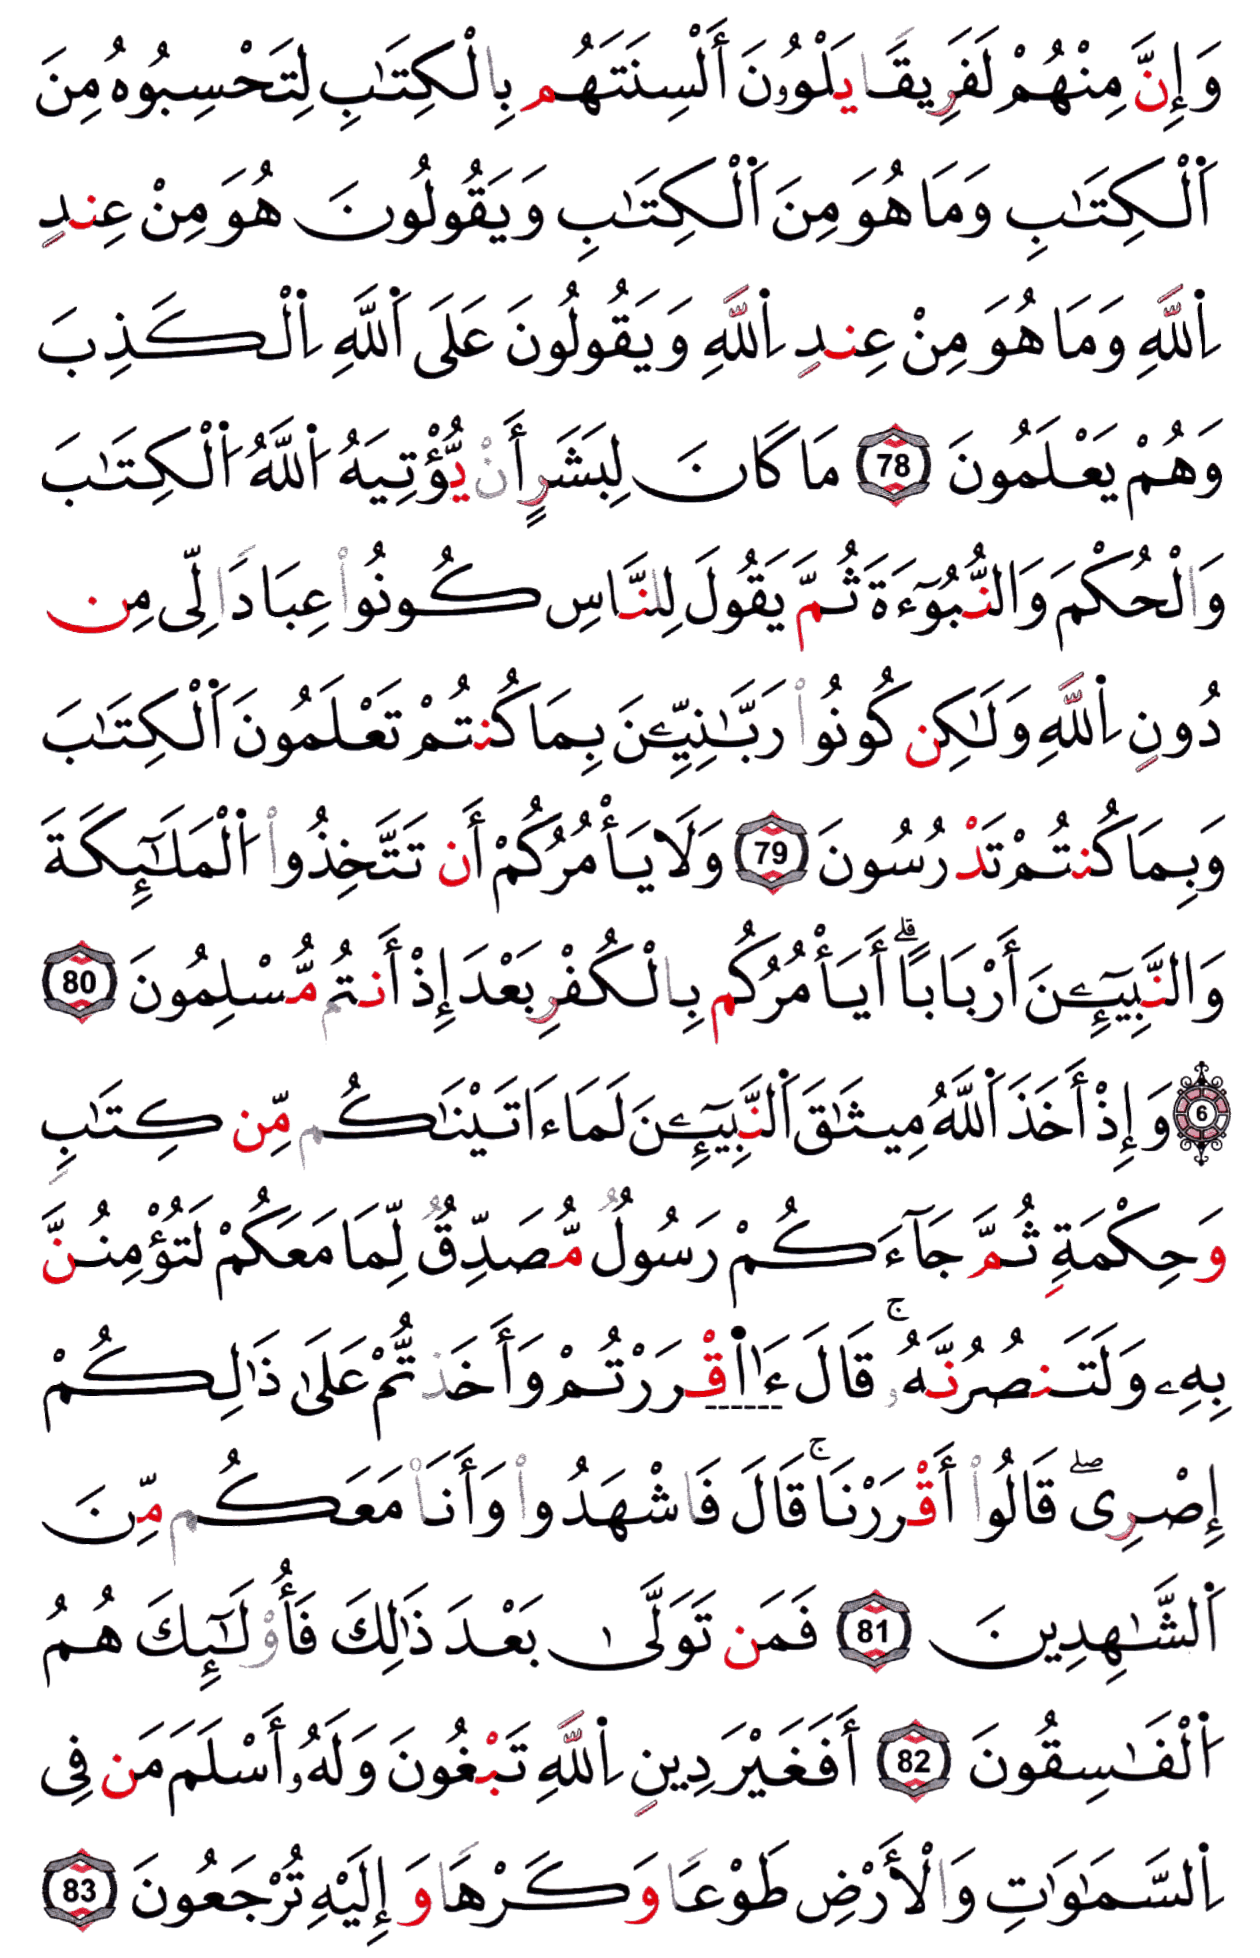 وَإِنَّ مِنْهُمْ لَفَرِيقًا يَلْوُۥنَ أَلْسِنَتَهُم بِالْكِتَٰبِ لِتَحْسِبُوهُ مِنَ
اَ۬لْكِتَٰبِ وَمَا هُوَ مِنَ اَ۬لْكِتَٰبِ وَيَقُولُونَ هُوَ مِنْ عِندِ
اِ۬للَّهِ وَمَا هُوَ مِنْ عِندِ اِ۬للَّهِ وَيَقُولُونَ عَلَى اَ۬للَّهِ اِ۬لْكَذِبَ
وَهُمْ يَعْلَمُونَ 78 مَا كَانَ لِبَشَرٍ أَنْ يُّؤْتِيَهُ اُ۬للَّهُ اُ۬لْكِتَٰبَ
وَالْحُكْمَ وَالنُّبُوٓءَةَ ثُمَّ يَقُولَ لِلنَّاسِ كُونُواْ عِبَادًا لِّى مِن
دُونِ اِ۬للَّهِ وَلَٰكِن كُونُواْ رَبَّٰنِيِّۦنَ بِمَا كُنتُمْ تَعْلَمُونَ اَ۬لْكِتَٰبَ
وَبِمَا كُنتُمْ تَدْرُسُونَ 79 وَلَا يَأْمُرُكُمْ أَن تَتَّخِذُواْ اُ۬لْمَلَٰٓئِكَةَ
وَالنَّبِيٓـِٕۧنَ أَرْبَابًاۗ أَيَأْمُرُكُم بِالْكُفْرِ بَعْدَ إِذْ أَنتُم مُّسْلِمُونَ 80
6 وَإِذْ أَخَذَ اَ۬للَّهُ مِيثَٰقَ اَ۬لنَّبِيٓـِٕۧنَ لَمَا ءَاتَيْنَٰكُم مِّن كِتَٰبٍ
وَحِكْمَةٍ ثُمَّ جَآءَكُمْ رَسُولٌ مُّصَدِّقٌ لِّمَا مَعَكُمْ لَتُؤْمِنُنَّ
بِهِۦ وَلَتَنصُرُنَّهُۥۚ قَالَ ءَا۬قْرَرْتُمْ وَأَخَذتُّمْ عَلَىٰ ذَٰلِكُمْ
إِصْرِىۖ قَالُواْ أَقْرَرْنَاۚ قَالَ فَاشْهَدُواْ وَأَنَا۠ مَعَكُم مِّنَ
اَ۬لشَّٰهِدِينَ 81 فَمَن تَوَلَّىٰ بَعْدَ ذَٰلِكَ فَأُوْلَٰٓئِكَ هُمُ
اُ۬لْفَٰسِقُونَ 82 أَفَغَيْرَ دِينِ اِ۬للَّهِ تَبْغُونَ وَلَهُۥ أَسْلَمَ مَن فِى
اِ۬لسَّمَٰوَٰتِ وَالْأَرْضِ طَوْعًا وَكَرْهًا وَإِلَيْهِ تُرْجَعُونَ 83